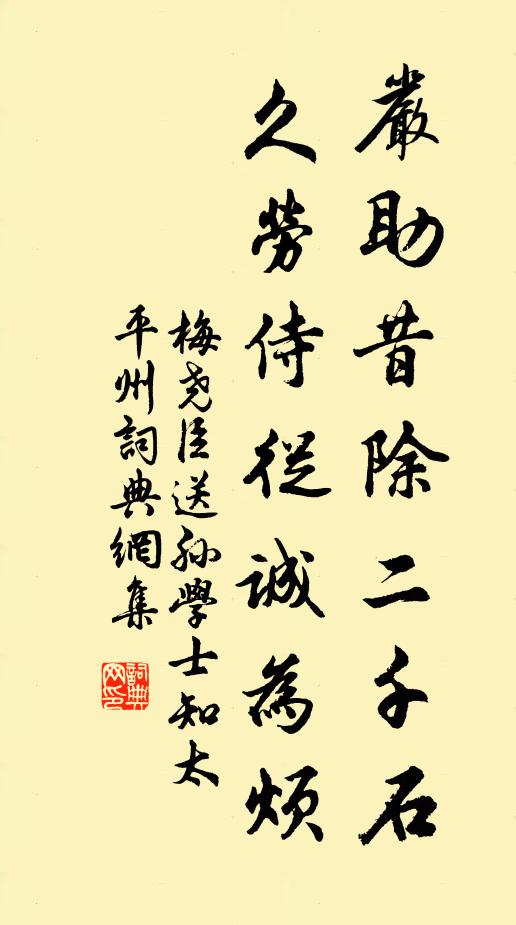 嚴助昔除二千石
久勞侍從誠為煩
梅堯臣送孙學士知太
平州詞典網集
詞典
网印